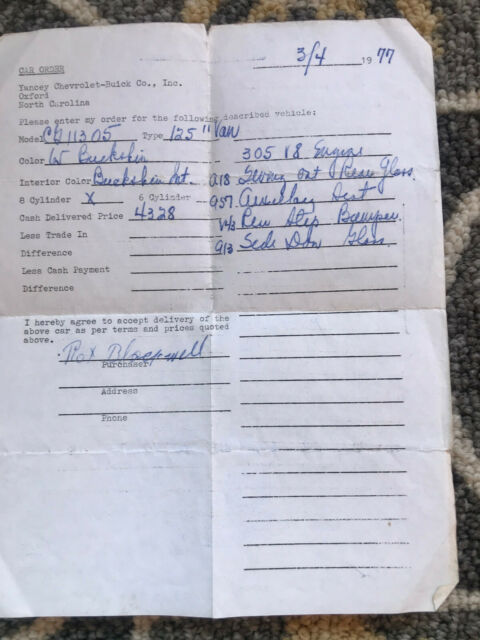 3/4 1977
CAR ORDER
Yancey Chevrolet-Buick Co., Inc.
Oxford
North Carolina
Please enter my order for the following described vehicle:
Model CG11305 Type 125" Van
Color W Buckskin
305 V8 Engine
Interior Color Buckskin Int.
A18 Swing out Rear Glass
8 Cylinder X 6 Cylinder
A57 Auxillary Seat
Cash Delivered Price 4328
V43 Rear Step Bumper
Less Trade In
A13 Side Door Glass
Difference
Less Cash Payment
Difference
I hereby agree to accept delivery of the
above car as per terms and prices quoted
above.
Blackwell
Purchaser
Address
Phone